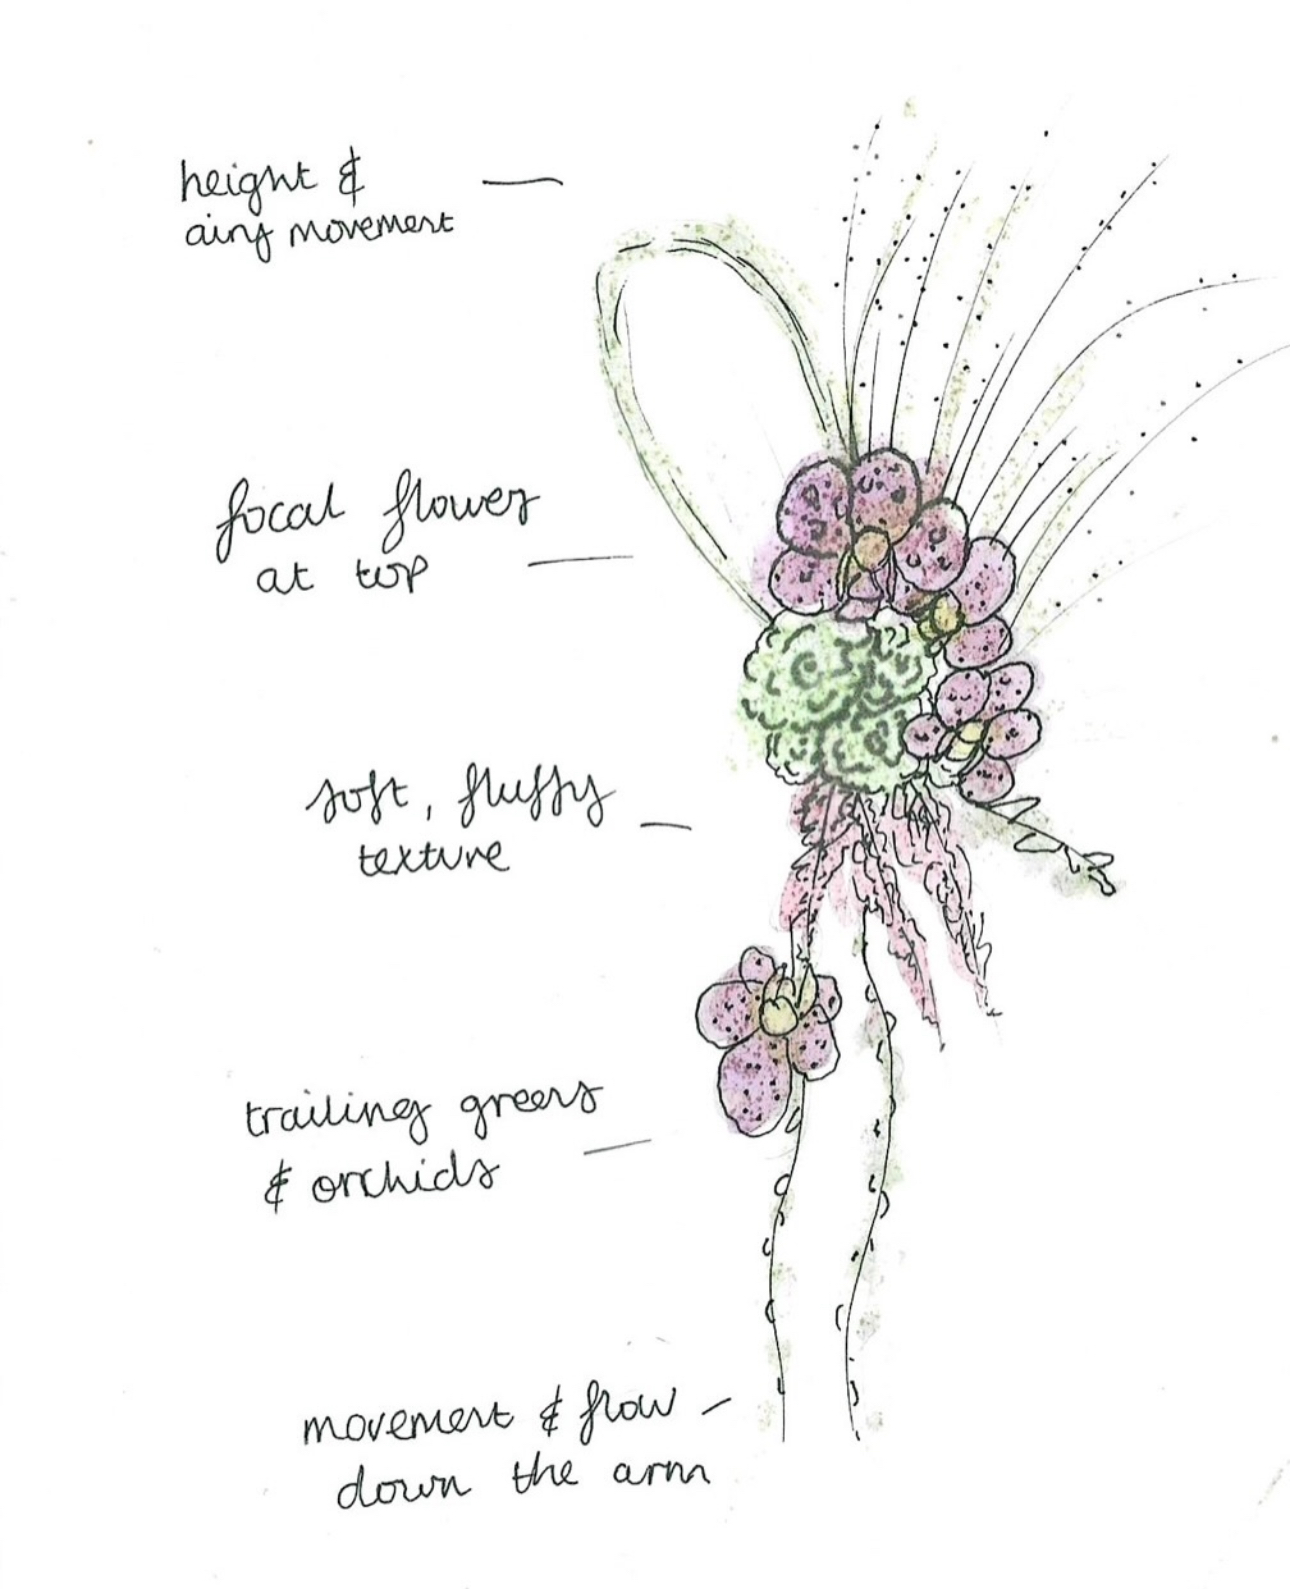 height &
airy movement
focal flower
at top
soft, fluffy
texture
trailing greens
& orchids
movement & flow
down the arm